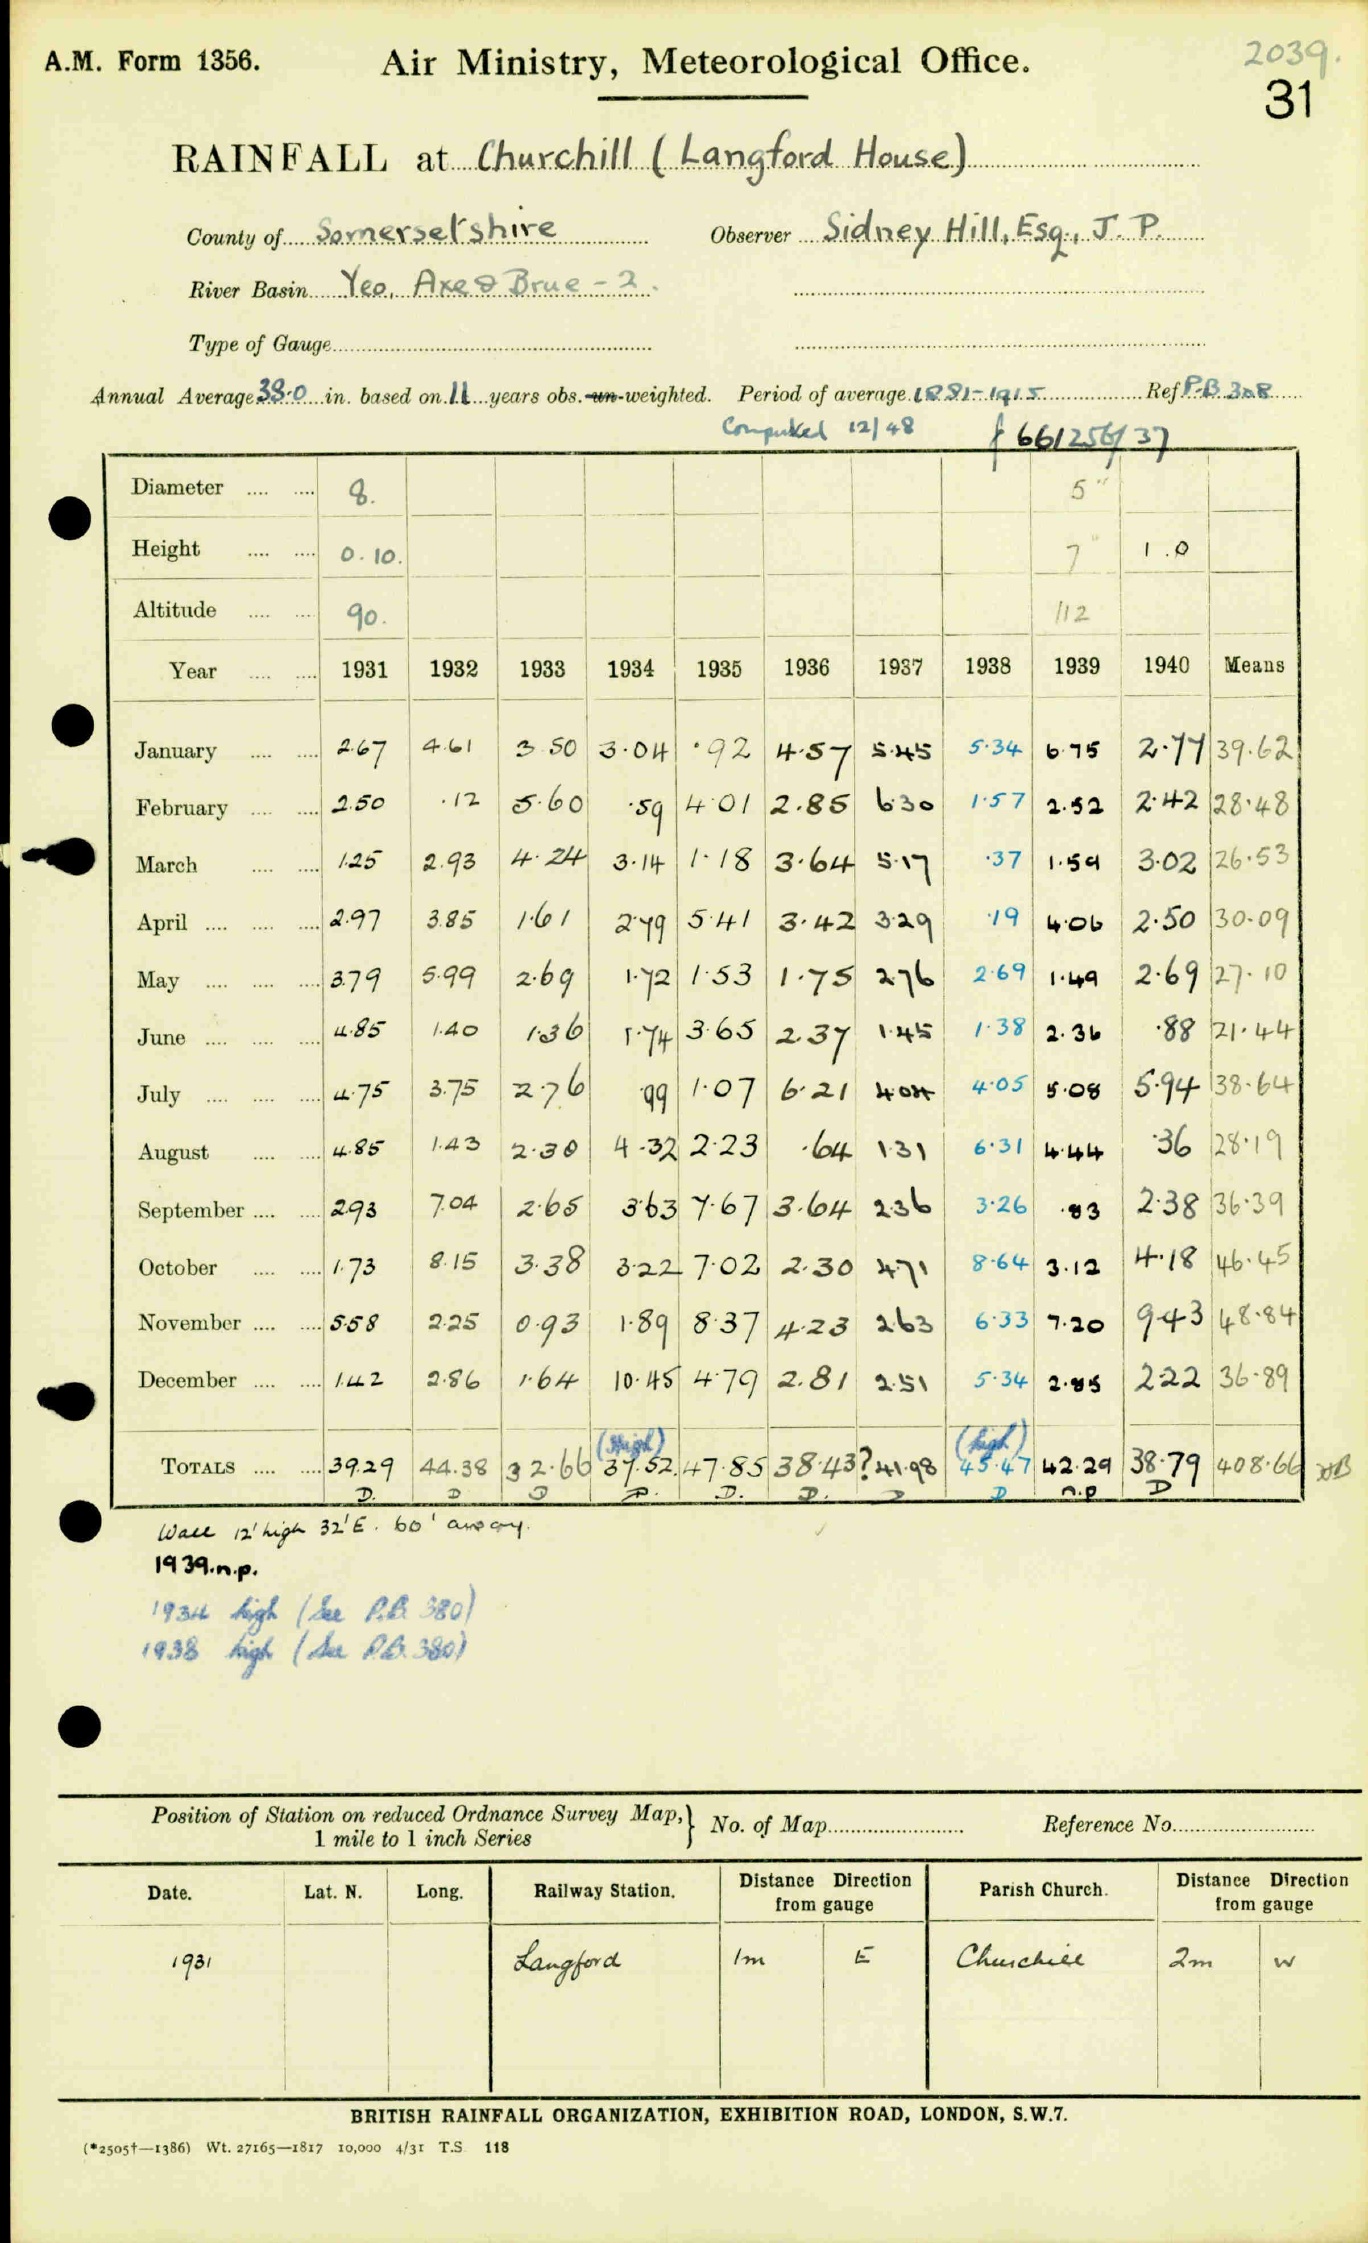 A.M. Form 1356.
Air Ministry, Meteorological Office.
2039.
31
RAINFALL at Churchill (Langford House)
County of Somersetshire Observer Sidney Hill, Esq., J. P.
River Basin Yeo, Axe & Brue - 2.
Type of Gauge
Annual Average 38.0 in. based on 11 years obs. un-weighted. Period of average 1881-1915 Ref P.B 308
Computed 12/48 f 661256/37
Diameter 8. 5"
Height 0.10. 7" 1.0
Altitude 90. 112
Year 1931 1932 1933 1934 1935 1936 1937 1938 1939 1940 Means
January 2.67 4.61 3.50 3.04 .92 4.57 5.45 5.34 6.75 2.77 39.62
February 2.50 .12 5.60 .59 4.01 2.85 6.30 1.57 2.52 2.42 28.48
March 1.25 2.93 4.24 3.14 1.18 3.64 5.17 .37 1.59 3.02 26.53
April 2.97 3.85 1.61 2.79 5.41 3.42 3.29 .19 4.06 2.50 30.09
May 3.79 5.99 2.69 1.72 1.53 1.75 2.76 2.69 1.49 2.69 27.10
June 4.85 1.40 1.36 1.74 3.65 2.37 1.45 1.38 2.36 .88 21.44
July 4.75 3.75 2.76 .99 1.07 6.21 4.04 4.05 5.08 5.94 38.64
August 4.85 1.43 2.30 4.32 2.23 .64 1.31 6.31 4.44 .36 28.19
September 2.93 7.04 2.65 3.63 7.67 3.64 2.36 3.26 .83 2.38 36.39
October 1.73 8.15 3.38 3.22 7.02 2.30 4.71 8.64 3.12 4.18 46.45
November 5.58 2.25 0.93 1.89 8.37 4.23 2.63 6.33 7.20 9.43 48.84
December 1.42 2.86 1.64 10.45 4.79 2.81 2.51 5.34 2.85 2.22 36.89
(High) (high)
TOTALS 39.29 44.38 32.66 37.52 47.85 38.43? 41.98 45.47 42.29 38.79 408.66
D. D D D. D. D. D D n.p D
Wall 12' high 32' E. 60' away.
1939.n.p.
1934 high (See P.B. 380)
1938 high (See P.B. 380)
Position of Station on reduced Ordnance Survey Map, } No. of Map Reference No.
1 mile to 1 inch Series
Date. Lat. N. Long. Railway Station. Distance Direction from gauge Parish Church. Distance Direction from gauge
1931 Langford 1m E Churchill 2m W
BRITISH RAINFALL ORGANIZATION, EXHIBITION ROAD, LONDON, S.W.7.
(*2505†—1386) Wt. 27165—1817 10,000 4/31 T.S. 118